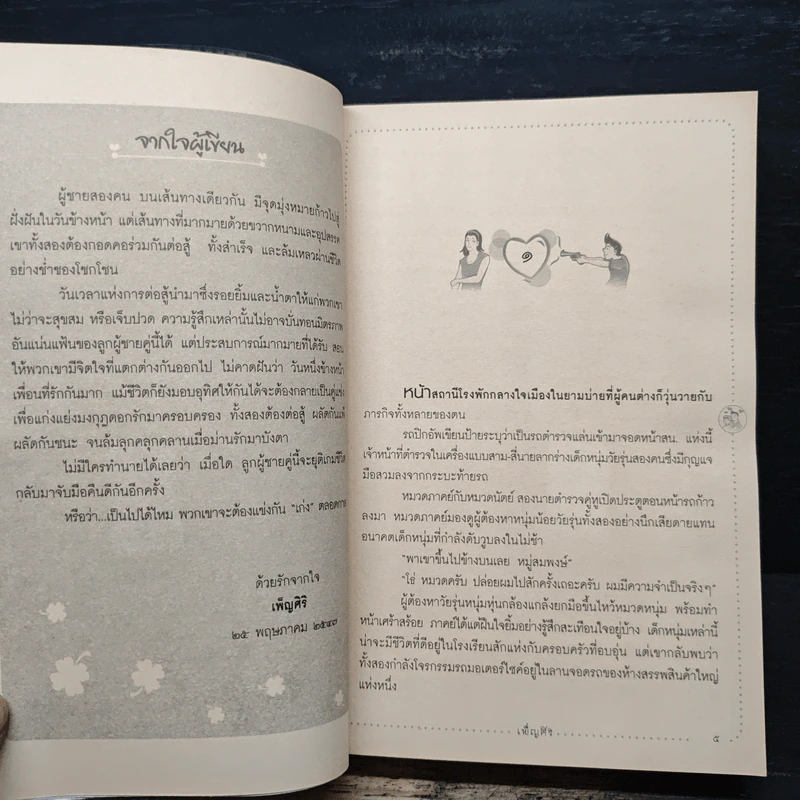 จากใจผู้เขียน
ผู้ชายสองคน บนเส้นทางเดียวกัน มีจุดมุ่งหมายก้าวไปสู่
ฝั่งฝันในวันข้างหน้า แต่เส้นทางที่มากมายด้วยขวากหนามและอุปสรรค
เขาทั้งสองต้องกอดคอร่วมกันต่อสู้ ทั้งสำเร็จ และล้มเหลวผ่านชีวิต
อย่างช่ำชองโชกโชน
วันเวลาแห่งการต่อสู้นำมาซึ่งรอยยิ้มและน้ำตาให้แก่พวกเขา
ไม่ว่าจะสุขสม หรือเจ็บปวด ความรู้สึกเหล่านั้นไม่อาจบั่นทอนมิตรภาพ
อันแน่นแฟ้นของลูกผู้ชายคู่นี้ได้ แต่ประสบการณ์มากมายที่ได้รับ สอน
ให้พวกเขามีจิตใจที่แตกต่างกันออกไป ไม่คาดฝันว่า วันหนึ่งข้างหน้า
เพื่อนที่รักกันมาก แม้ชีวิตก็ยังมอบอุทิศให้กันได้จะต้องกลายเป็นคู่แข่ง
เพื่อแก่งแย่งมงกุฎดอกรักมาครอบครอง ทั้งสองต้องต่อสู้ ผลัดกันแพ้
ผลัดกันชนะ จนล้มลุกคลุกคลานเมื่อม่านรักมาบังตา
ไม่มีใครทำนายได้เลยว่า เมื่อใด ลูกผู้ชายคู่นี้จะยุติเกมชีวิต
กลับมาจับมือคืนดีกันอีกครั้ง
หรือว่า...เป็นไปได้ไหม พวกเขาจะต้องแข่งกัน "เก่ง" ตลอดกาล
ด้วยรักจากใจ
เพ็ญศิริ
๒๕ พฤษภาคม ๒๕๔๗
๑
หน้าสถานีโรงพักกลางใจเมืองในยามบ่ายที่ผู้คนต่างก็วุ่นวายกับ
ภารกิจทั้งหลายของตน
รถปิกอัพเขียนป้ายระบุว่าเป็นรถตำรวจแล่นเข้ามาจอดหน้าสน. แห่งนี้
เจ้าหน้าที่ตำรวจในเครื่องแบบสาม-สี่นายลากร่างเด็กหนุ่มวัยรุ่นสองคนซึ่งมีกุญแจ
มือสวมลงจากกระบะท้ายรถ
หมวดภาคย์กับหมวดนัตย์ สองนายตำรวจคู่หูเปิดประตูตอนหน้ารถก้าว
ลงมา หมวดภาคย์มองดูผู้ต้องหาหนุ่มน้อยวัยรุ่นทั้งสองอย่างนึกเสียดายแทน
อนาคตเด็กหนุ่มที่กำลังดับวูบลงในไม่ช้า
"พาเขาขึ้นไปข้างบนเลย หมู่สมพงษ์"
"โธ่ หมวดครับ ปล่อยผมไปสักครั้งเถอะครับ ผมมีความจำเป็นจริงๆ"
ผู้ต้องหาวัยรุ่นหนุ่มหุ่นกล้องแกล้งยกมือขึ้นไหว้หมวดหนุ่ม พร้อมทำ
หน้าเศร้าสร้อย ภาคย์ได้แต่ฝืนใจยิ้มอย่างรู้สึกสะเทือนใจอยู่บ้าง เด็กหนุ่มเหล่านี้
น่าจะมีชีวิตที่ดีอยู่ในโรงเรียนสักแห่งกับครอบครัวที่อบอุ่น แต่เขากลับพบว่า
ทั้งสองกำลังโจรกรรมรถมอเตอร์ไซค์อยู่ในลานจอดรถของห้างสรรพสินค้าใหญ่
แห่งหนึ่ง
เพ็ญศิริ
๕